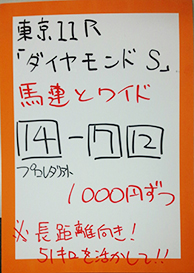 東京11R
「ダイヤモンドS」
馬連とワイド
14-7 12
プロレタリアト
1000円ずつ
※長距離向き!
51キロを活かして!!